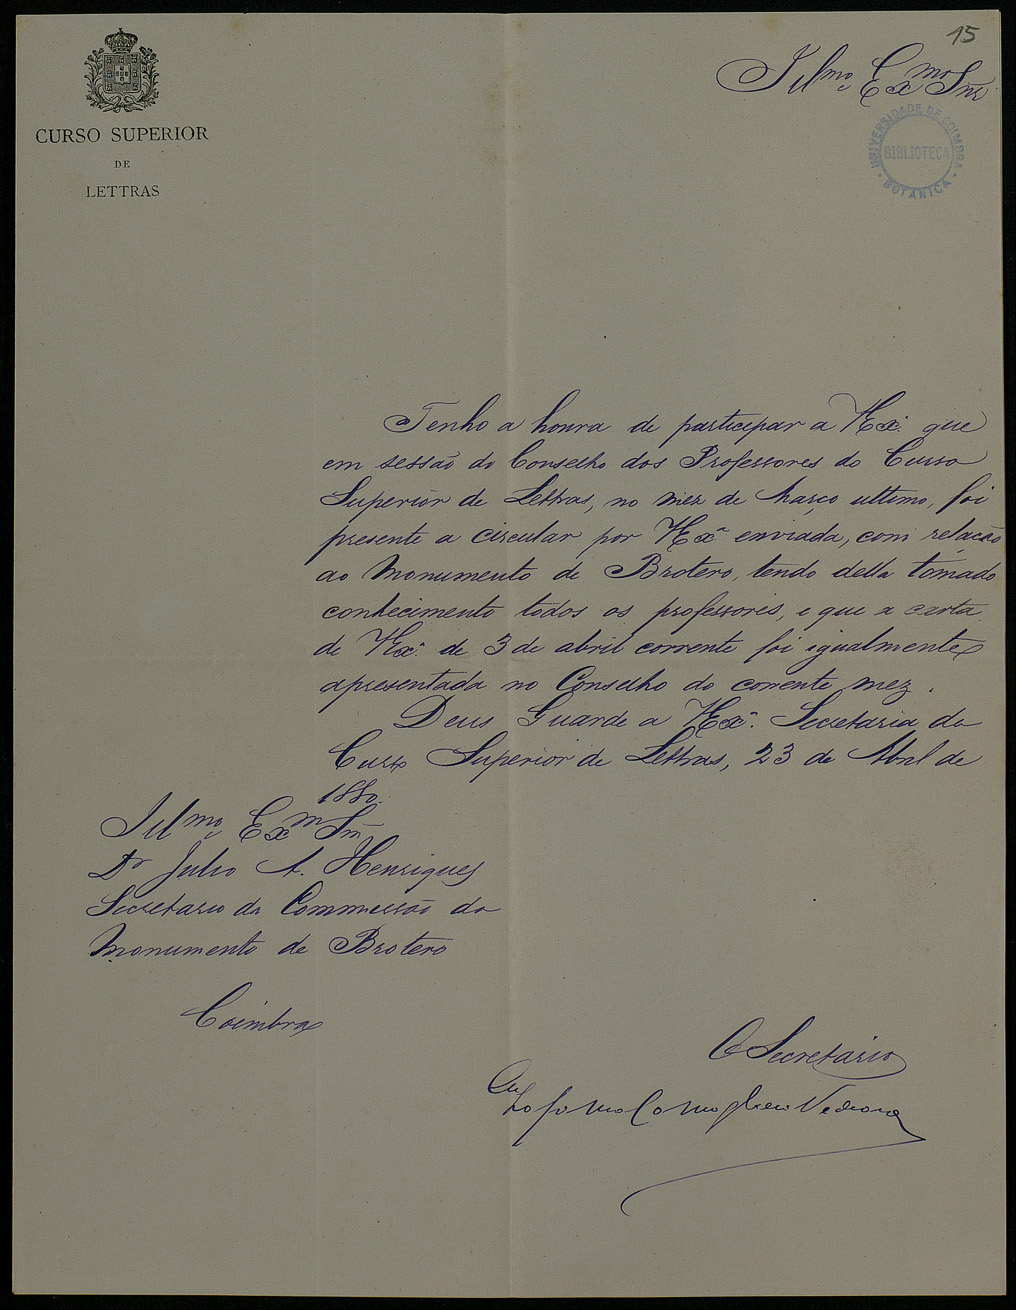 15
CURSO SUPERIOR
DE
LETTRAS
Illmo. Exmo Snr
UNIVERSIDADE DE COIMBRA
BIBLIOTECA
BOTANICA
Tenho a honra de participar a V Exa. que
em sessão do Conselho dos Professores do Curso
Superior de Lettras, no mez de março ultimo, foi
presente a circular por V Exa enviada, com relação
ao Monumento de Brotero, tendo della tomado
conhecimento todos os professores, e que a carta
de V Exa. de 3 de abril corrente foi igualmente
apresentada no Conselho do corrente mez.
Deus Guarde a V Exa. Secretaria do
Curso Superior de Lettras, 23 de Abril de
1880.
Illmo. Exmo Snr
Dr Julio A. Henriques
Secretario da Commissão do
Monumento de Brotero
Coimbra
O Secretario